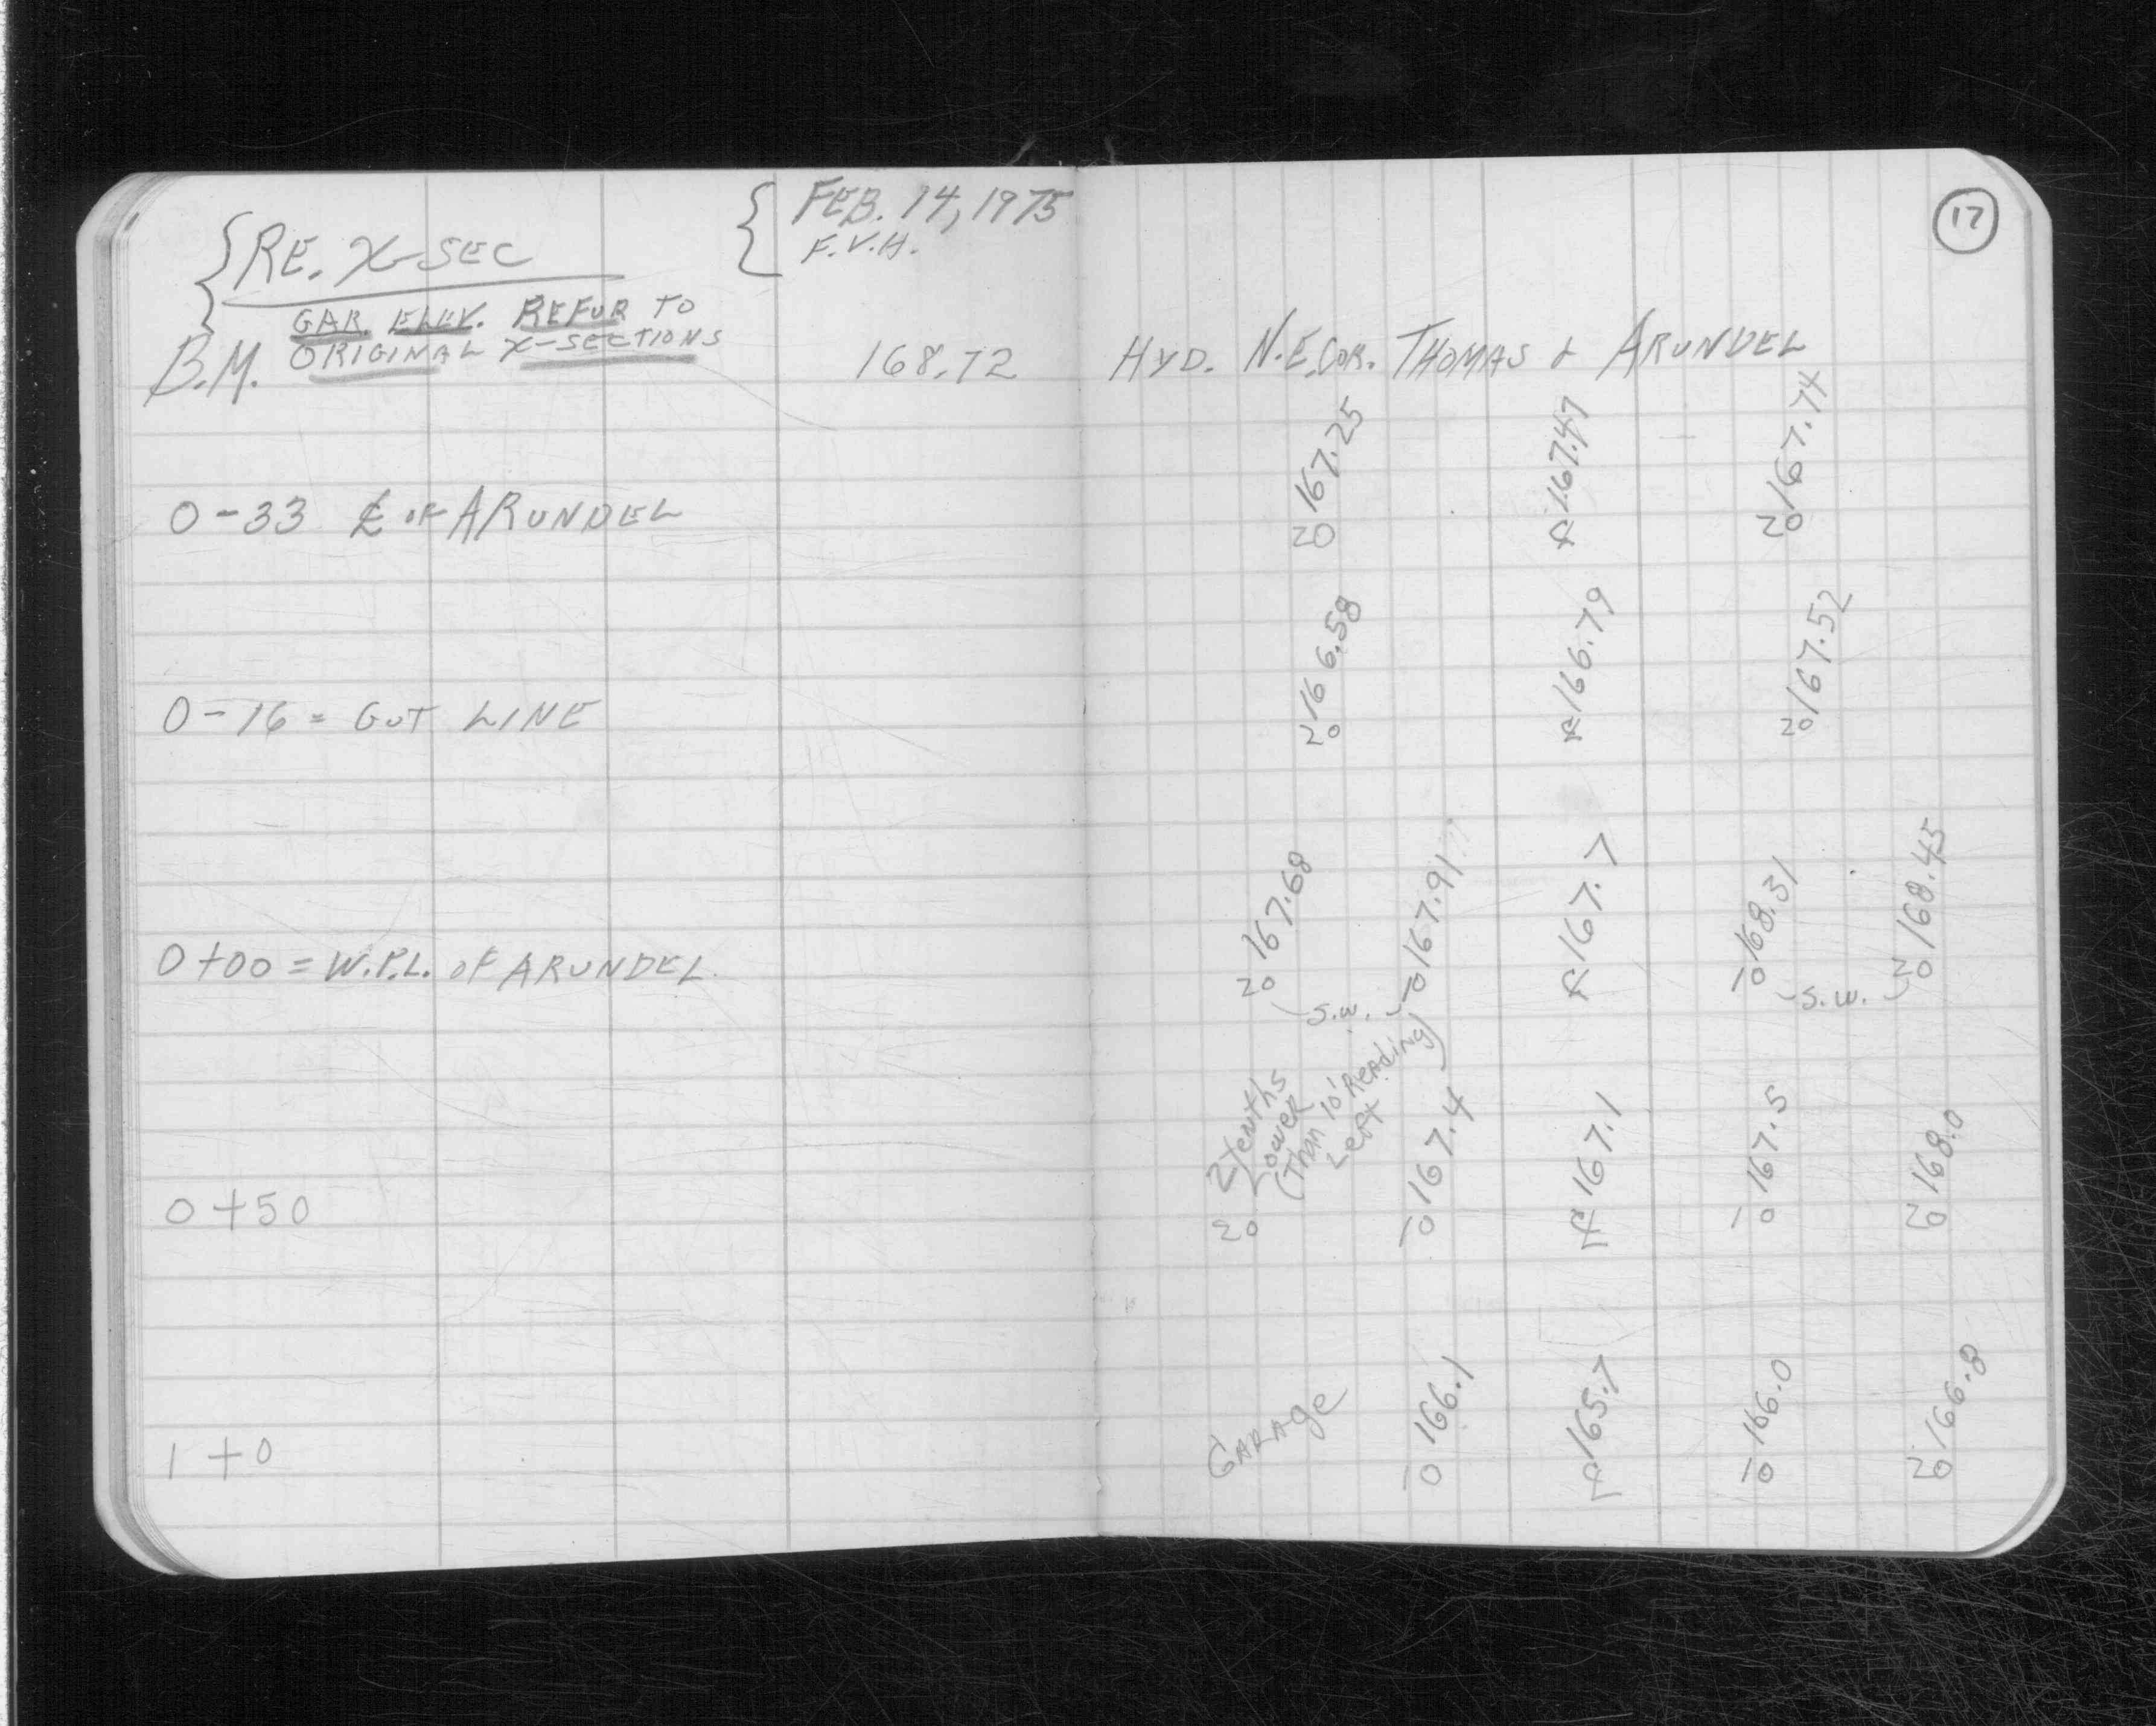 RE. X-SEC
FEB. 14, 1975
F.V.H.
17
GAR. ELEV. REFUR TO
ORIGINAL X-SECTIONS
B.M. 168.72 HYD. N.E. COR. THOMAS & ARUNDEL
0-33 ℄ OF ARUNDEL
20 167.25
℄ 167.47
20 167.74
0-16 = GUT LINE
20 166.58
℄ 166.79
20 167.52
0+00 = W.P.L. OF ARUNDEL
20 167.68
S.W.
10 167.91
℄ 167.7
10 168.31
S.W.
20 168.45
0+50
20 2 tenths
Lower
(Than 10' Reading)
Left
10 167.4
℄ 167.1
10 167.5
20 168.0
1+0
GARAge
10 166.1
℄ 165.7
10 166.0
20 166.8